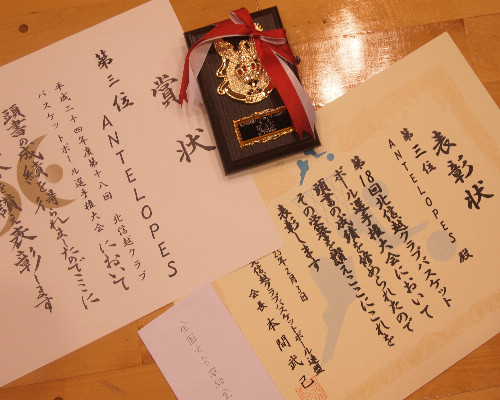 賞状
第三位 ANTELOPES
平成二十四年度第十八回 北信越クラブ
バスケットボール選手権大会において
頭書の成績を得られましたのでここに
表彰します
表彰状
第三位
ANTELOPES 殿
第18回北信越クラブバスケット
ボール選手権大会において
頭書の成績を修められたので
その栄誉を讃えここにこれを
表彰します
北信越クラブバスケットボール連盟
会長 本間武己